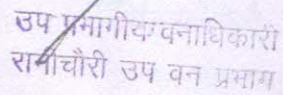 उप प्रभागीय वनाधिकारी
रानीचौरी उप वन प्रभाग